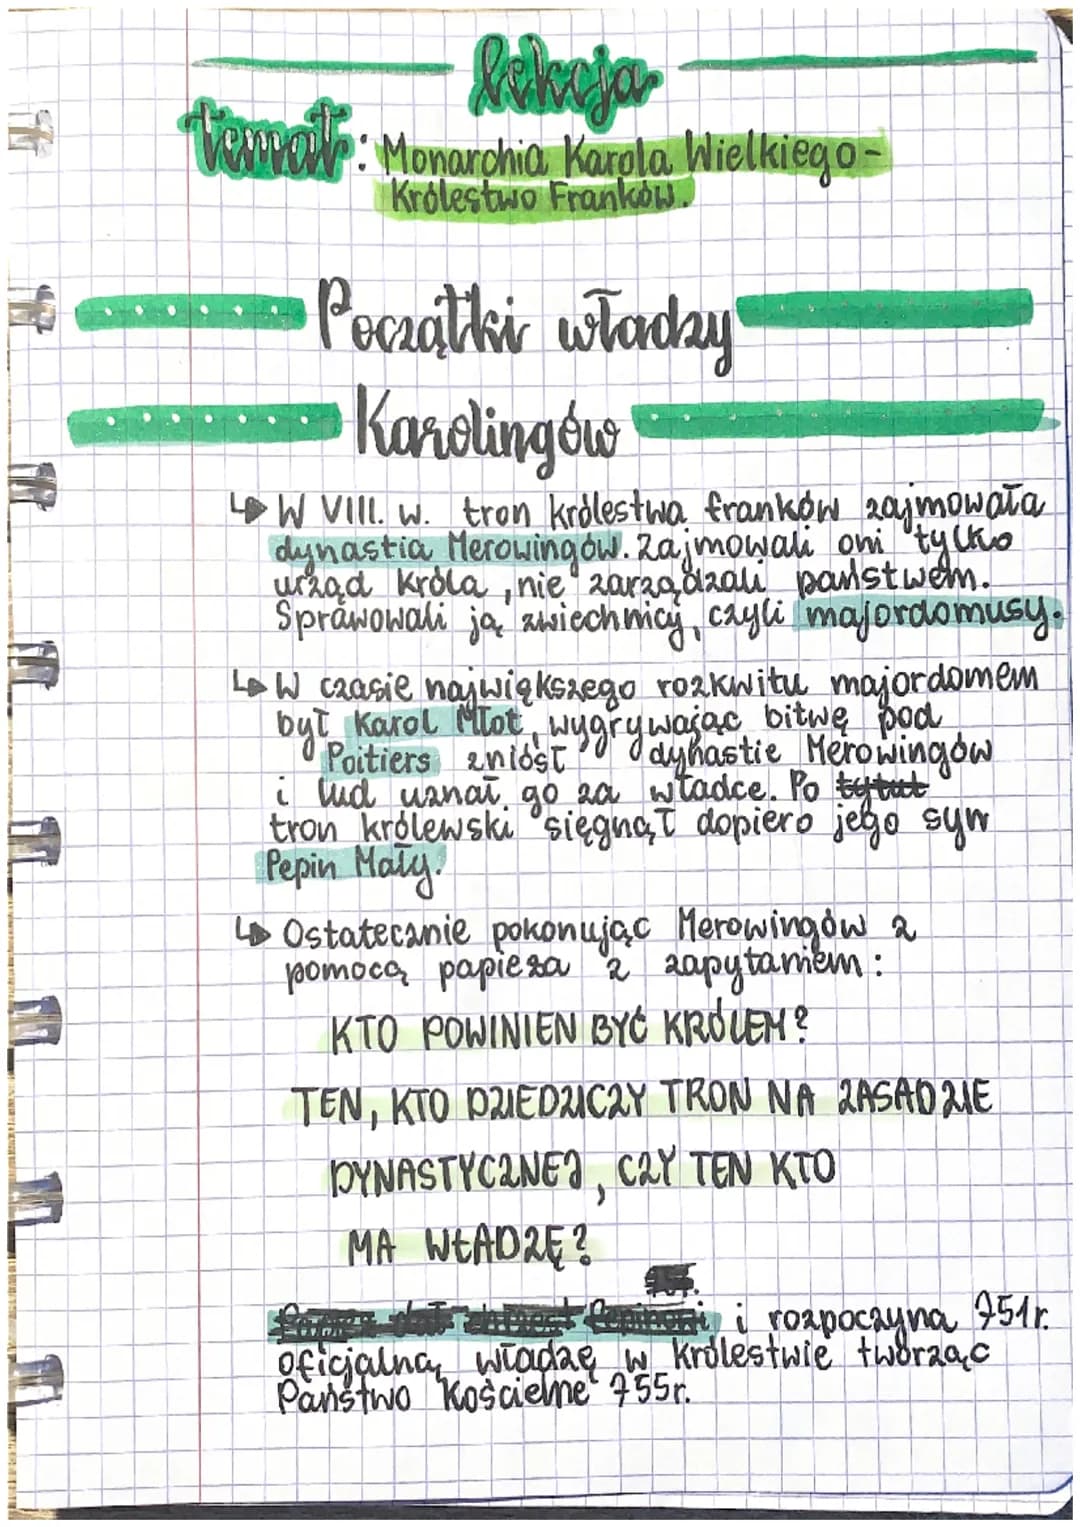 lekcja
temat: Monarchia Karola Wielkiego-
Królestwo Franków.
Początki władzy
Karolingów
↳ W VIII. w. tron królestwa franków zajmowała
dynastia Merowingów. Zajmowali oni tylko
urząd króla, nie zarządzali państwem.
Sprawowali ją zwiechnicy, czyli majordomusy.
↳ W czasie największego rozkwitu majordomem
był Karol Młot, wygrywając bitwę pod
Poitiers zniósł dynastie Merowingów
i lud uznał go za władce. Po tytuł
tron królewski sięgnął dopiero jego syn
Pepin Mały.
↳ Ostatecznie pokonując Merowingów z
pomocą papieża z zapytaniem:
KTO POWINIEN BYĆ KRÓLEM?
TEN, KTO DZIEDZICZY TRON NA ZASADZIE
DYNASTYCZNEJ, CZY TEN KTO
MA WŁADZĘ?
i rozpoczyna 751r.
oficjalną władzę w królestwie tworząc
Państwo Kościelne 755r.